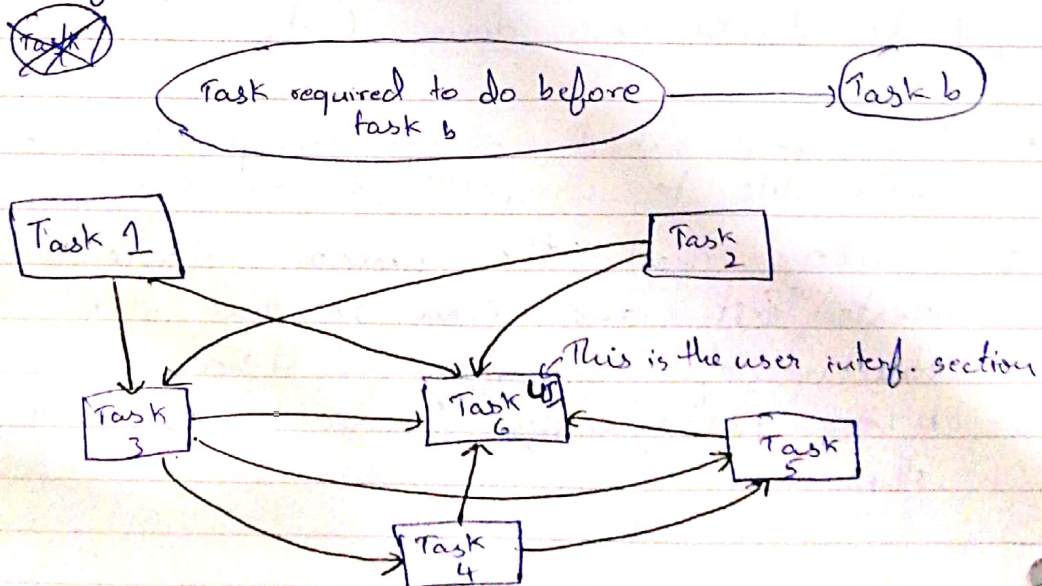 Task required to do before
task b
Task b
Task 1
Task
2
This is the user interf. section
Task
3
Task
6
Task
5
Task
4